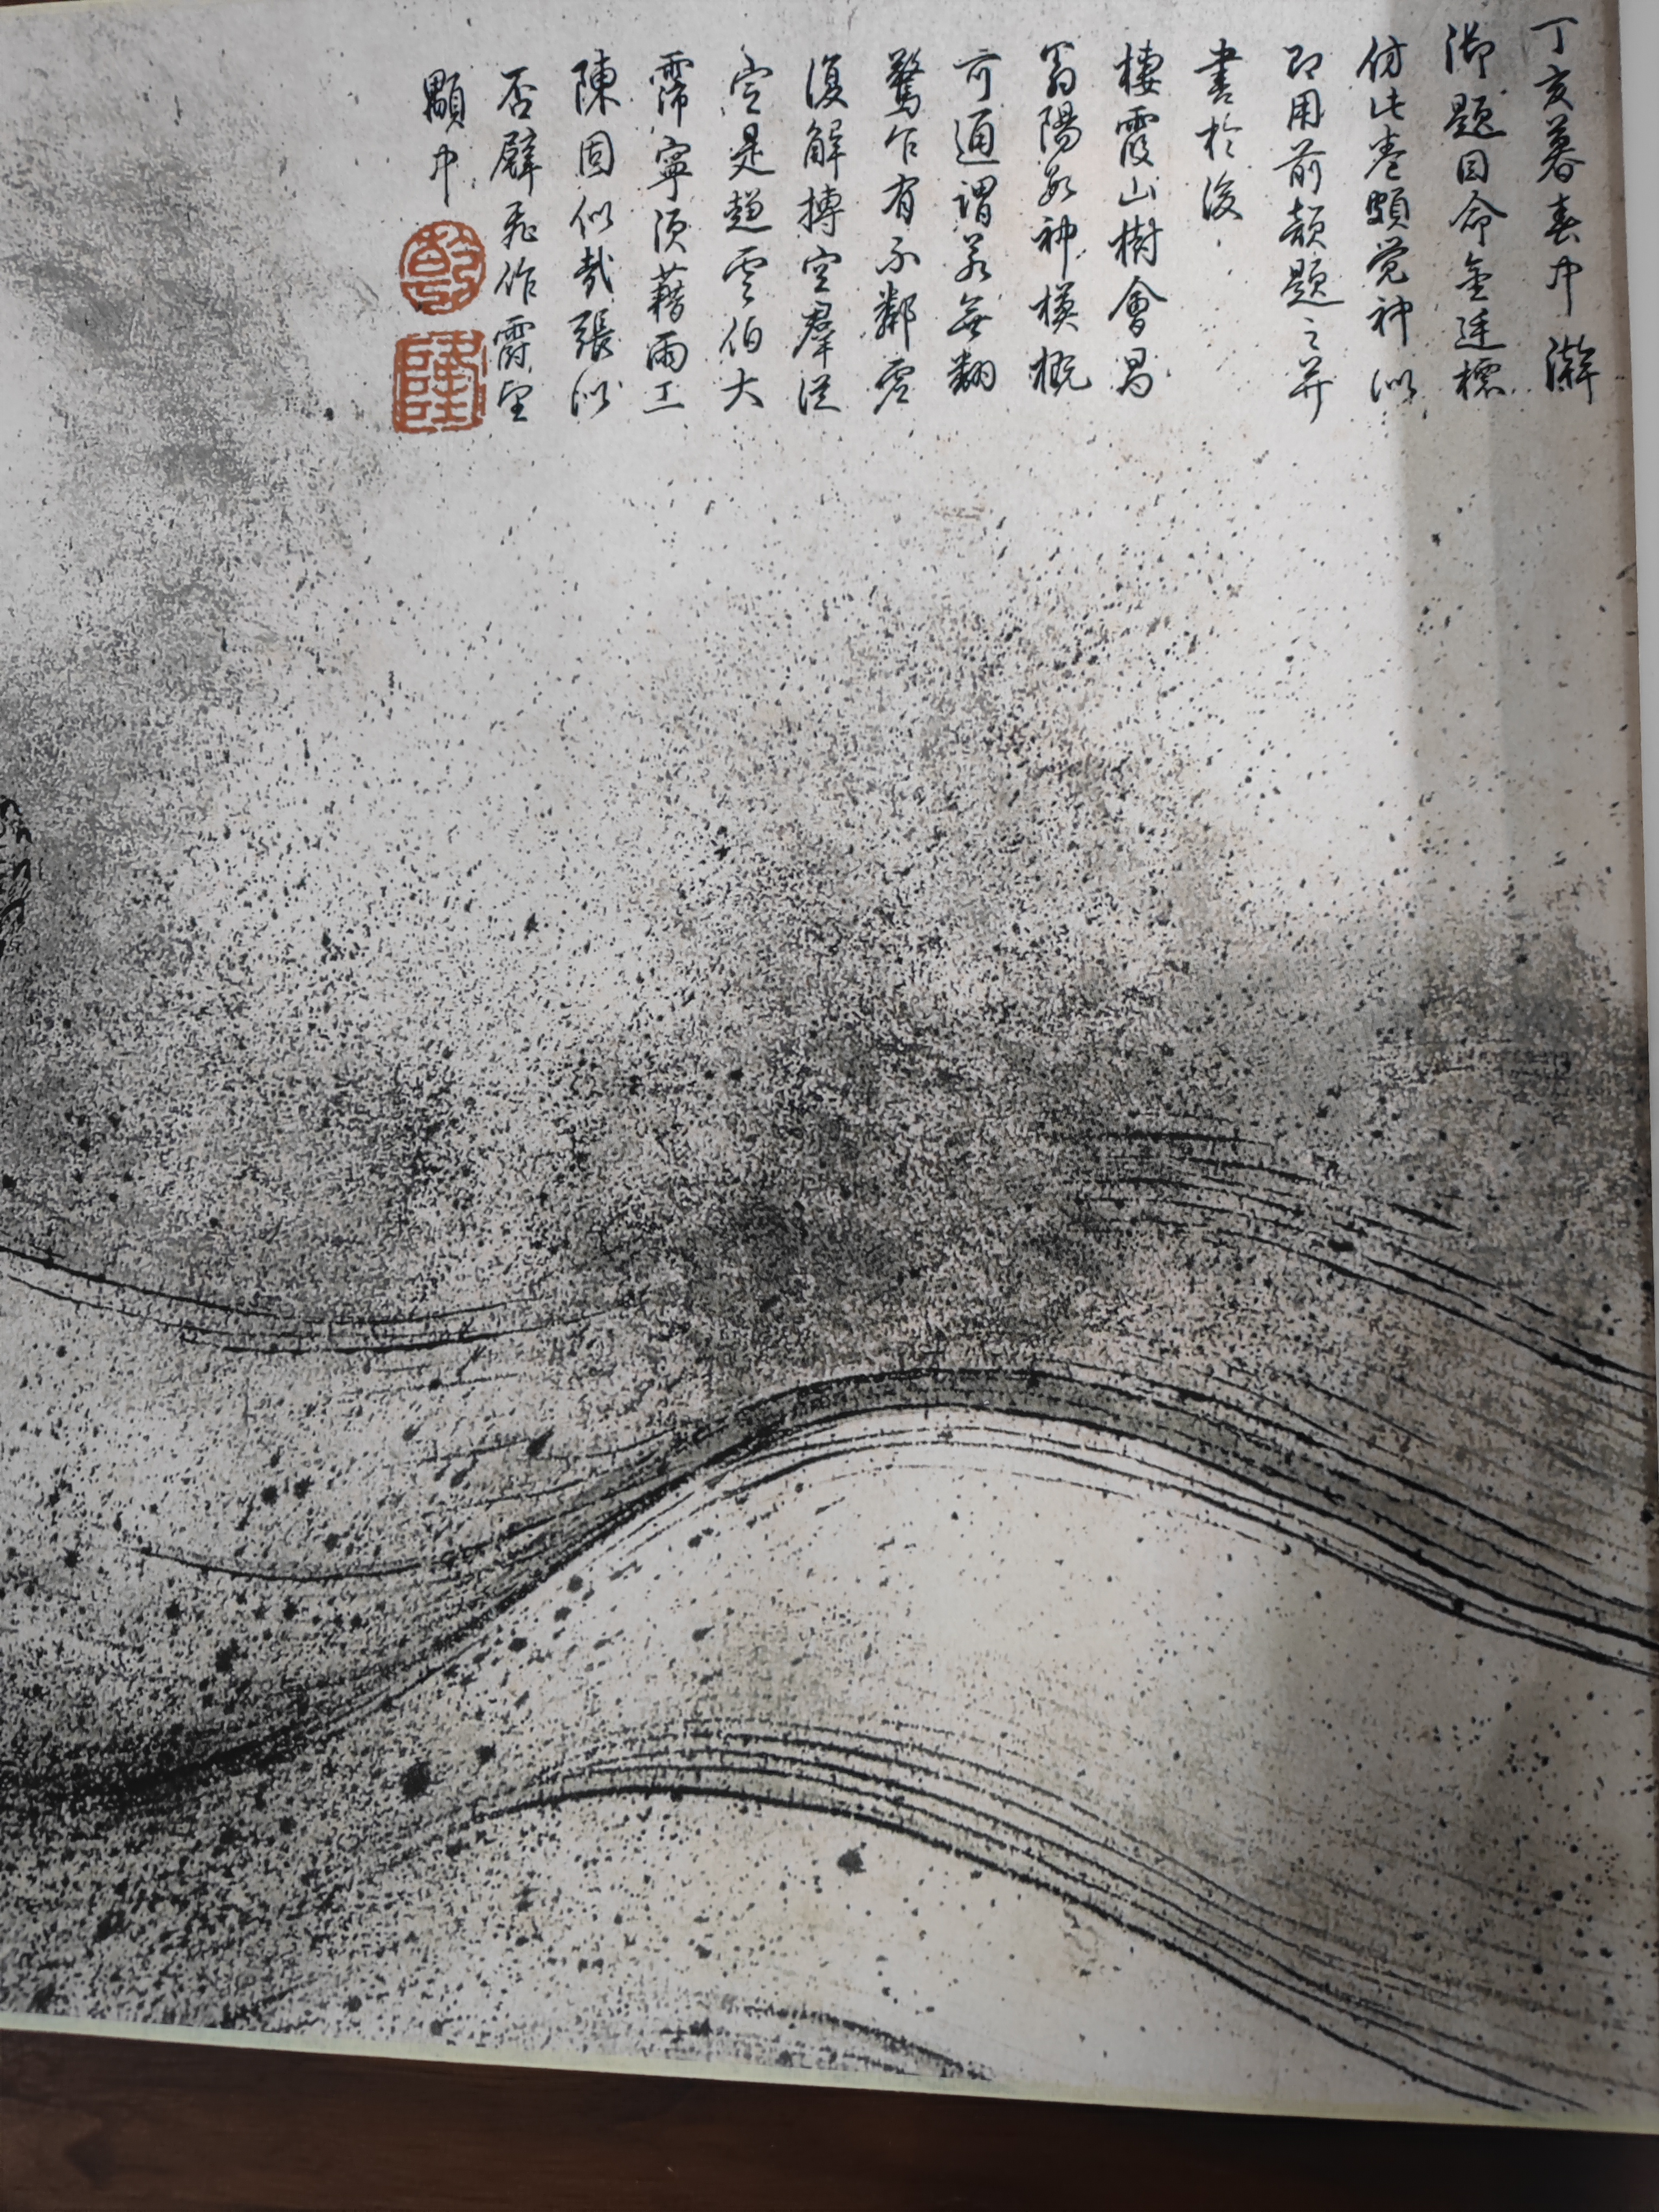 丁亥暮春中澣
御題目命金廷標
仿此卷頗覺神似
即用前韻題之并
書於後
棲霞山樹會昌
翁陽 神模概
可通謂 無翻
驚乍有不鄰虛
復解摶空羣從
定是趙雲伯大
霈寧須藉雨工
陳固似哉張似
否壁飛作霨望
顒中
乾
隆